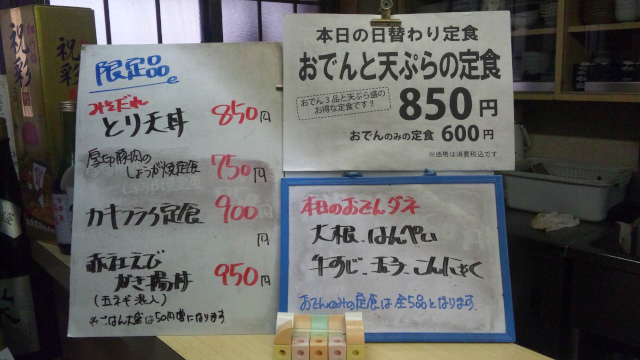 祝彩
限定品
みぞだれ
とり天丼 850円
厚切豚肉の
しょうが焼定食 750円
カキフライ定食 900円
赤社えび
かき揚丼 950円
(玉ネギ混入)
※ごはん大盛は50円増になります
本日の日替わり定食
おでんと天ぷらの定食
おでん3品と天ぷら盛の
お得な定食です!!
850円
おでんのみの定食 600円
※価格は消費税込です
本日のおでんダネ
大根 はんぺい
牛すじ 玉子 こんにゃく
おでんのみの定食は全5品となります